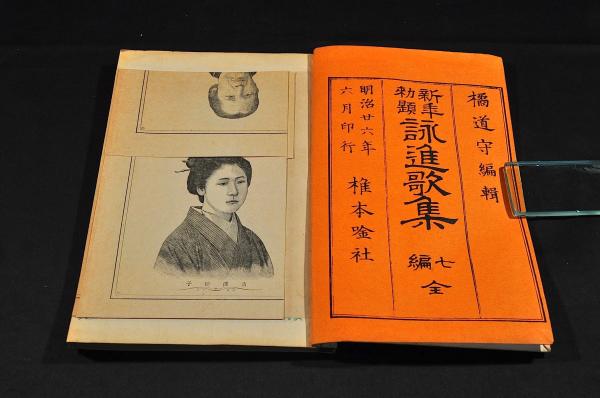 橘道守編輯
新年
勅題
詠進歌集
七編
全
明治廿六年
六月印行
椎本唫社